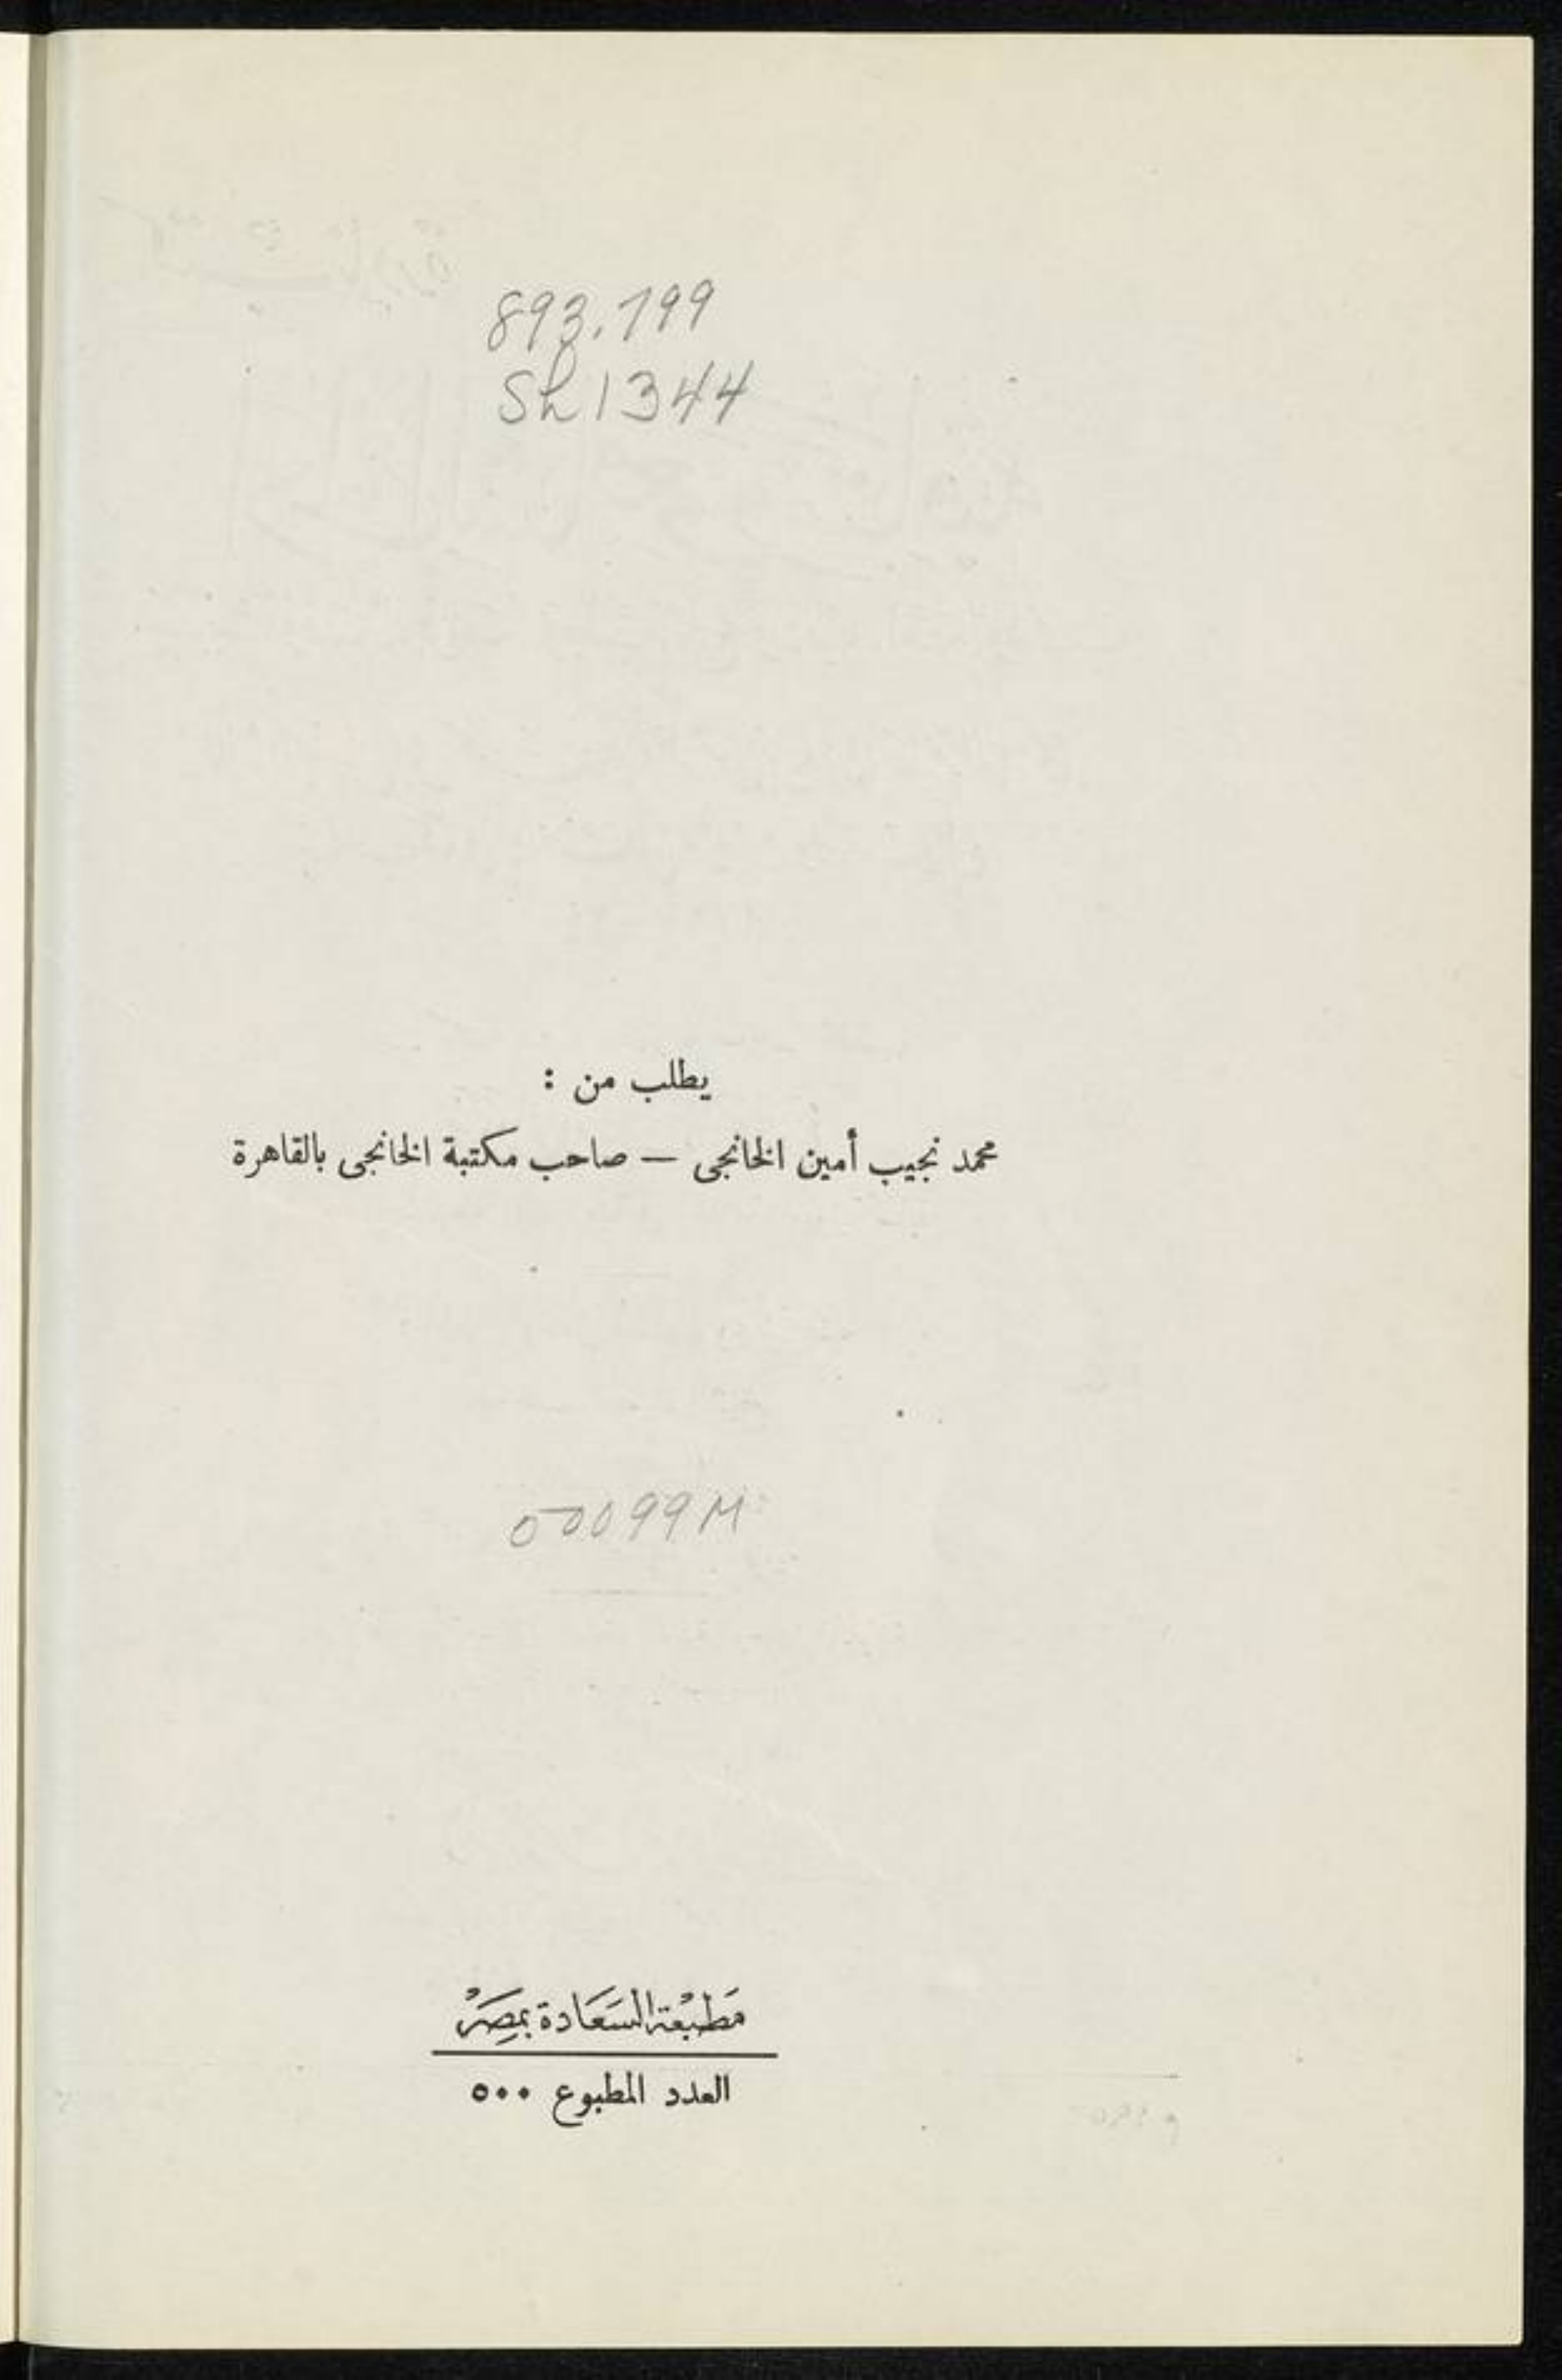 893.799
Sh1344
يطلب من :
محمد نجيب أمين الخانجى — صاحب مكتبة الخانجى بالقاهرة
00099M
مَطبَعْة السَعَادة بمِصَرْ
العدد المطبوع ٥٠٠